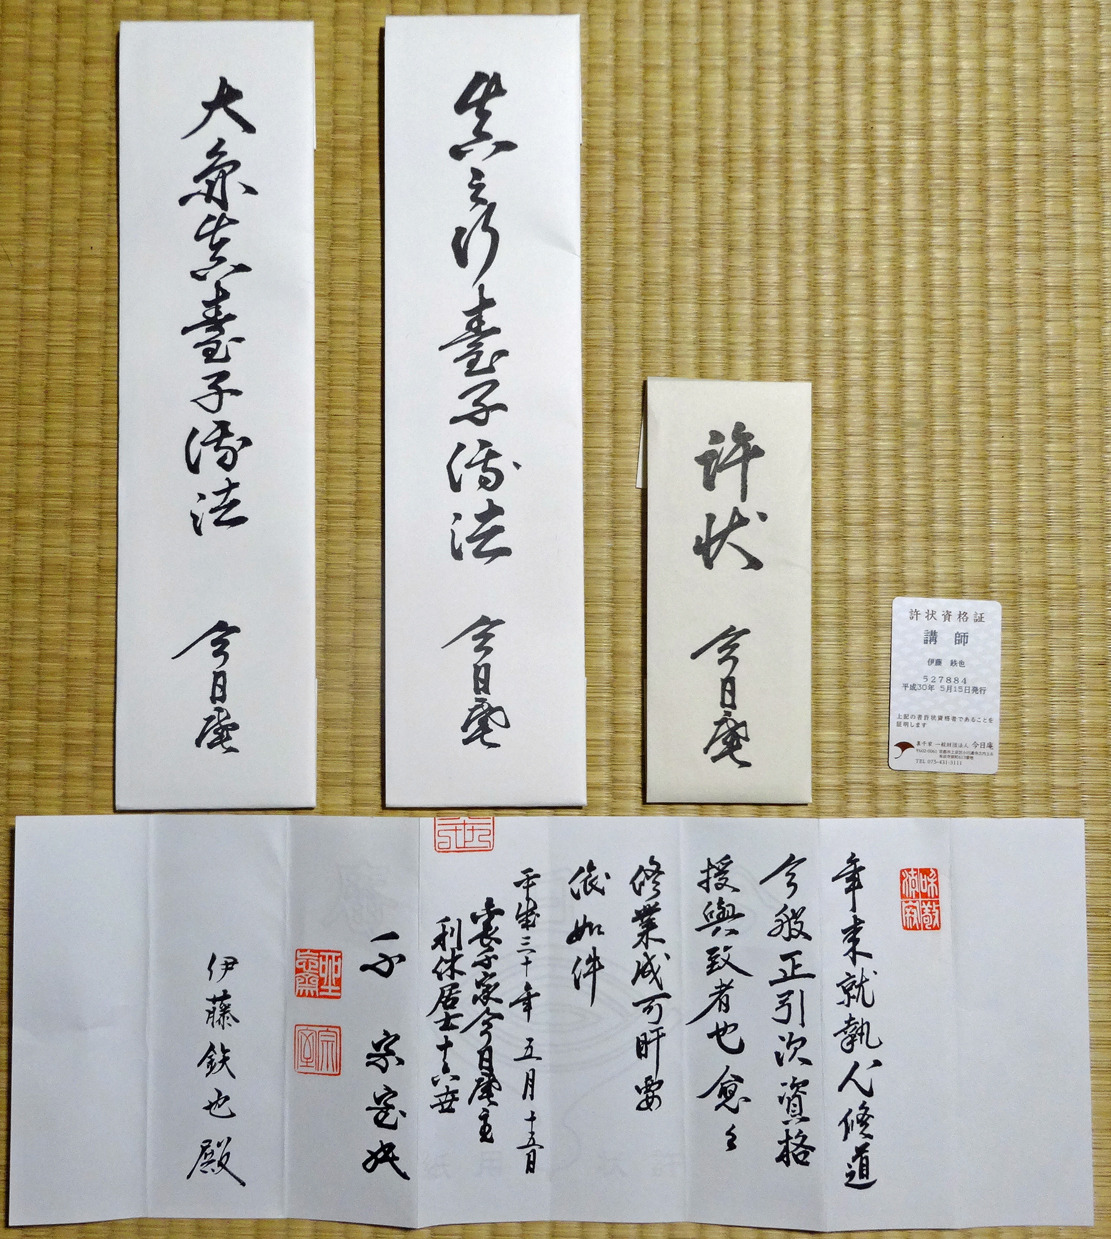 真之行臺子傳法
今日庵
大圓真臺子傳法
今日庵
許状
今日庵
許状資格証
講師
伊藤 鉄也
527884
平成30年 5月15日発行
上記の者許状資格者であることを
証明します
裏千家 一般財団法人 今日庵
TEL 075-431-3111
年来就執心修道
今般正引次資格
授與致者也愈々
修業成可肝要
依如件
平成三十年 五月 十五日
裏千家今日庵主
利休居士十六世
千 宗室
伊藤鉄也殿
許状用紙